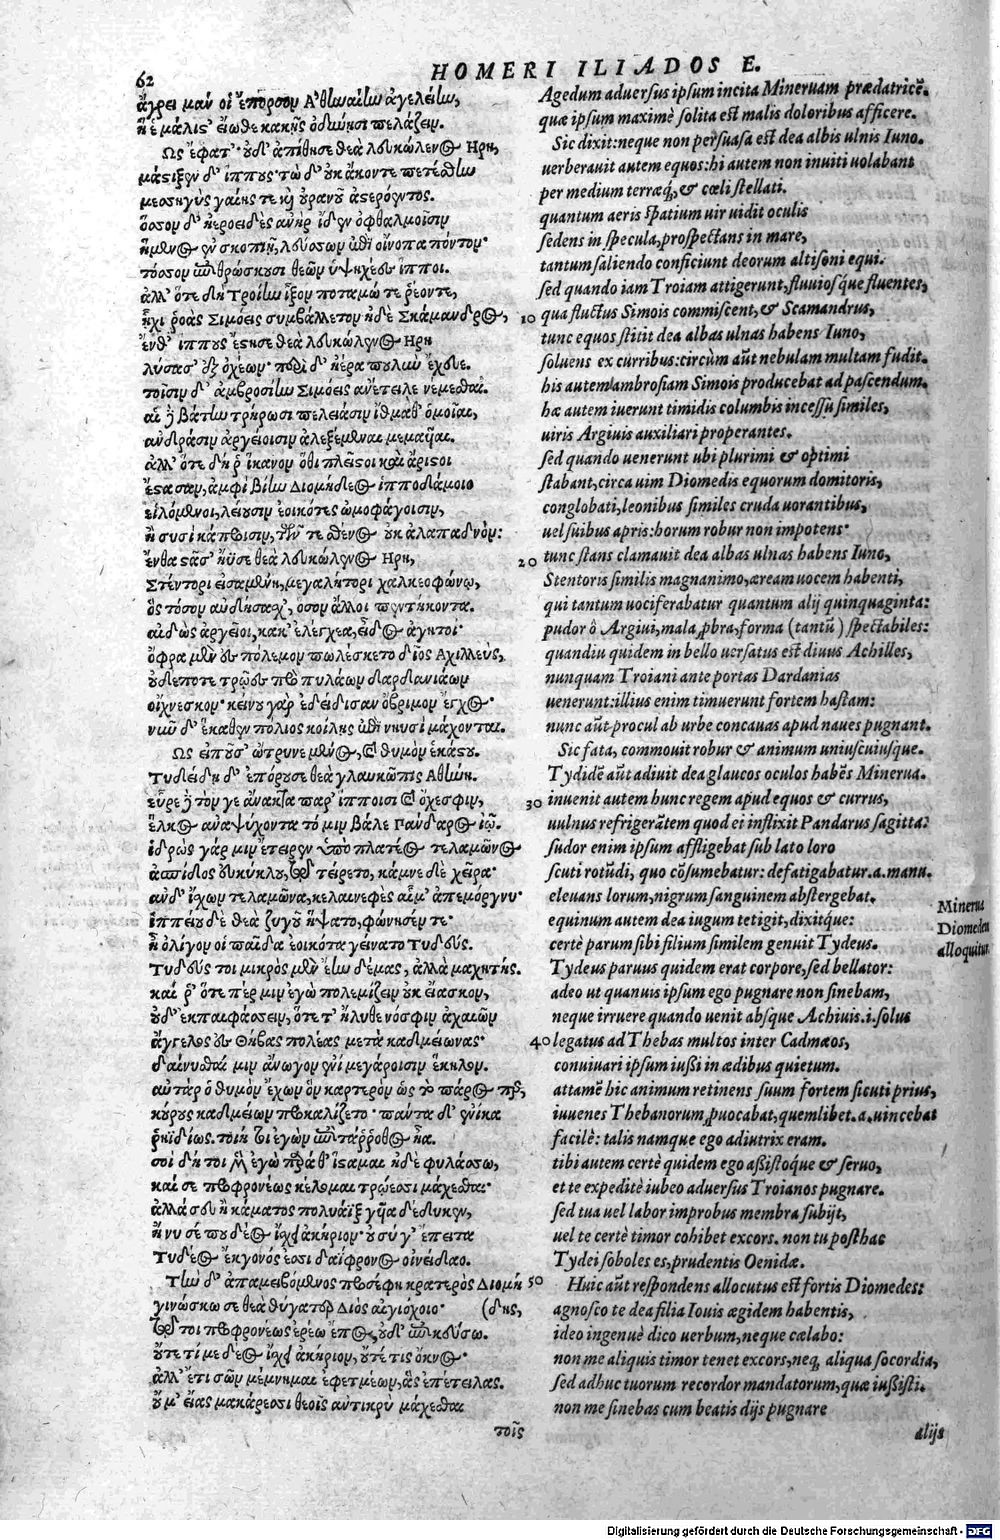 62
HOMERI ILIADOS E.
ἄγρει μὰν οἱ ἔπορσον Ἀθηναίην ἀγελείην,
ἥ ἑ μάλιστ' εἴωθε κακῇς ὀδύνῃσι πελάζειν.
Ὣς ἔφατ'· οὐδ' ἀπίθησε θεὰ λευκώλενος Ἥρη,
μάστιξεν δ' ἵππους· τὼ δ' οὐκ ἄκοντε πετέσθην
μεσσηγὺς γαίης τε καὶ οὐρανοῦ ἀστερόεντος.
ὅσσον δ' ἠεροειδὲς ἀνὴρ ἴδεν ὀφθαλμοῖσιν
ἥμενος ἐν σκοπιῇ, λεύσσων ἐπὶ οἴνοπα πόντον·
τόσσον ἐπιθρώσκουσι θεῶν ὑψηχέες ἵπποι.
ἀλλ' ὅτε δὴ Τροίην ἷξον ποταμώ τε ῥέοντε,
ἧχι ῥοὰς Σιμόεις συμβάλλετον ἠδὲ Σκάμανδρος,
ἔνθ' ἵππους ἔστησε θεὰ λευκώλενος Ἥρη
λύσασ' ἐξ ὀχέων· περὶ δ' ἠέρα πουλὺν ἔχευε.
τοῖσιν δ' ἀμβροσίην Σιμόεις ἀνέτειλε νέμεσθαι.
αἱ δὲ βάτην τρήρωσι πελειάσιν ἴθμαθ' ὁμοῖαι,
ἀνδράσιν ἀργείοισιν ἀλεξέμεναι μεμαυῖαι.
ἀλλ' ὅτε δή ῥ' ἵκανον ὅθι πλεῖστοι καὶ ἄριστοι
ἕστασαν, ἀμφὶ βίην Διομήδεος ἱπποδάμοιο
εἰλόμενοι, λείουσιν ἐοικότες ὠμοφάγοισιν,
ἢ συσὶ κάπροισιν, τῶν τε σθένος οὐκ ἀλαπαδνόν:
ἔνθα στᾶσ' ἤϋσε θεὰ λευκώλενος Ἥρη,
Στέντορι εἰσαμένη, μεγαλήτορι χαλκεοφώνῳ,
ὃς τόσον αὐδήσασχ', ὅσον ἄλλοι πεντήκοντα.
αἰδὼς ἀργεῖοι, κάκ' ἐλέγχεα, εἶδος ἀγητοί·
ὄφρα μὲν ἐς πόλεμον πωλέσκετο δῖος Ἀχιλλεύς,
οὐδέποτε τρῶες πρὸ πυλάων δαρδανιάων
οἴχνεσκον· κείνου γὰρ ἐδείδισαν ὄβριμον ἔγχος·
νῦν δ' ἕκαθεν πόλιος κοίλῃς ἐπὶ νηυσὶ μάχονται.
Ὣς εἰποῦσ' ὤτρυνε μένος, καὶ θυμὸν ἑκάστου.
Τυδείδῃ δ' ἐπόρουσε θεὰ γλαυκῶπις Ἀθήνη.
εὗρε δὲ τόν γε ἄνακτα παρ' ἵπποισι καὶ ὄχεσφιν,
ἕλκος ἀναψύχοντα τό μιν βάλε Πάνδαρος ἰῷ.
ἱδρὼς γάρ μιν ἔτειρεν ὑπὸ πλατέος τελαμῶνος
ἀσπίδος εὐκύκλου, τῷ τείρετο, κάμνε δὲ χεῖρα·
ἀνὰ δ' ἴχων τελαμῶνα, κελαινεφὲς αἷμ' ἀπεμόργνυ·
ἱππείου δὲ θεὰ ζυγοῦ ἥψατο, φώνησέν τε·
ἦ ὀλίγον οἱ παῖδα ἐοικότα γείνατο Τυδεύς.
Τυδεύς τοι μικρὸς μὲν ἔην δέμας, ἀλλὰ μαχητής.
καί ῥ' ὅτε πέρ μιν ἐγὼ πολεμίζειν οὐκ εἴασκον,
οὐδ' ἐκπαιφάσσειν, ὅτε τ' ἤλυθε νόσφιν ἀχαιῶν
ἄγγελος ἐς Θήβας πολέας μετὰ καδμείωνας·
δαίνυσθαί μιν ἄνωγον ἐνὶ μεγάροισιν ἕκηλον.
αὐτὰρ ὁ θυμὸν ἔχων ὃν καρτερὸν ὡς τὸ πάρος περ,
κούρους καδμείων προκαλίζετο· πάντα δ' ἐνίκα
ῥηϊδίως. τοίη οἱ ἐγὼν ἐπιτάρροθος ἦα.
σοὶ δή τοι μὲν ἐγὼ παρά θ' ἵσταμαι ἠδὲ φυλάσσω,
καί σε προφρονέως κέλομαι τρώεσσι μάχεσθαι·
ἀλλά σευ ἢ κάματος πολυάϊξ γυῖα δέδυκεν,
ἤ νύ σέ που δέος ἴσχει ἀκήριον· οὐ σύ γ' ἔπειτα
Τυδέος ἔκγονός ἐσσι δαΐφρονος οἰνείδαο.
Τὴν δ' ἀπαμειβόμενος προσέφη κρατερὸς Διομή
γινώσκω σε θεὰ θύγατερ Διὸς αἰγιόχοιο· (δης,
τῷ τοι προφρονέως ἐρέω ἔπος, οὐδ' ἐπικεύσω.
οὔτε τί με δέος ἴσχει ἀκήριον, οὔτέ τις ὄκνος·
ἀλλ' ἔτι σῶν μέμνημαι ἐφετμέων, ἃς ἐπέτειλας.
οὔ μ' εἴας μακάρεσσι θεοῖς ἀντικρὺ μάχεσθαι
τοῖς
Agedum aduersus ipsum incita Mineruam prædatricẽ.
quæ ipsum maximè solita est malis doloribus afficere.
Sic dixit: neque non persuasa est dea albis ulnis Iuno.
uerberauit autem equos: hi autem non inuiti uolabant
per medium terræq́;, & cœli stellati.
quantum aeris spatium uir uidit oculis
sedens in specula, prospectans in mare,
tantum saliendo conficiunt deorum altisoni equi.
sed quando iam Troiam attigerunt, fluuiosq́ue fluentes,
10 qua fluctus Simois commiscent, & Scamandrus,
tunc equos stitit dea albas ulnas habens Iuno,
soluens ex curribus: circùm aũt nebulam multam fudit.
his autem ambrosiam Simois producebat ad pascendum.
hæ autem iuerunt timidis columbis incessu similes,
uiris Argiuis auxiliari properantes.
sed quando uenerunt ubi plurimi & optimi
stabant, circa uim Diomedis equorum domitoris,
conglobati, leonibus similes cruda uorantibus,
uel suibus apris: horum robur non impotens·
20 tunc stans clamauit dea albas ulnas habens Iuno,
Stentoris similis magnanimo, æream uocem habenti,
qui tantum uociferabatur quantum alij quinquaginta:
pudor ô Argiui, mala ꝓbra, forma (tantũ) spectabiles:
quandiu quidem in bello uersatus est diuus Achilles,
nunquam Troiani ante portas Dardanias
uenerunt: illius enim timuerunt fortem hastam:
nunc aũt procul ab urbe concauas apud naues pugnant.
Sic fata, commouit robur & animum uniuscuiusque.
Tydidẽ aũt adiuit dea glaucos oculos habẽs Minerua.
30 inuenit autem hunc regem apud equos & currus,
uulnus refrigerãtem quod ei inflixit Pandarus sagitta:
sudor enim ipsum affligebat sub lato loro
scuti rotũdi, quo cõsumebatur: defatigabatur .a. manu.
eleuans lorum, nigrum sanguinem abstergebat.
equinum autem dea iugum tetigit, dixitq́ue:
certè parum sibi filium similem genuit Tydeus.
Tydeus paruus quidem erat corpore, sed bellator:
adeo ut quanuis ipsum ego pugnare non sinebam,
neque irruere quando uenit absque Achiuis .i. solus
40 legatus ad Thebas multos inter Cadmæos,
conuiuari ipsum iußi in ædibus quietum.
attamẽ hic animum retinens suum fortem sicuti prius,
iuuenes Thebanorum ꝓuocabat, quemlibet .a. uincebat
facilè: talis namque ego adiutrix eram.
tibi autem certè quidem ego aßistoq́ue & seruo,
et te expeditè iubeo aduersus Troianos pugnare.
sed tua uel labor improbus membra subijt,
uel te certè timor cohibet excors. non tu posthac
Tydei soboles es, prudentis Oenidæ.
50 Huic aũt respondens allocutus est fortis Diomedes:
agnosco te dea filia Iouis ægidem habentis,
ideo ingenuè dico uerbum, neque cælabo:
non me aliquis timor tenet excors, neq; aliqua socordia,
sed adhuc tuorum recordor mandatorum, quæ iußisti.
non me sinebas cum beatis dijs pugnare
alijs
Minerua
Diomedem
alloquitur.
Digitalisierung gefördert durch die Deutsche Forschungsgemeinschaft - DFG